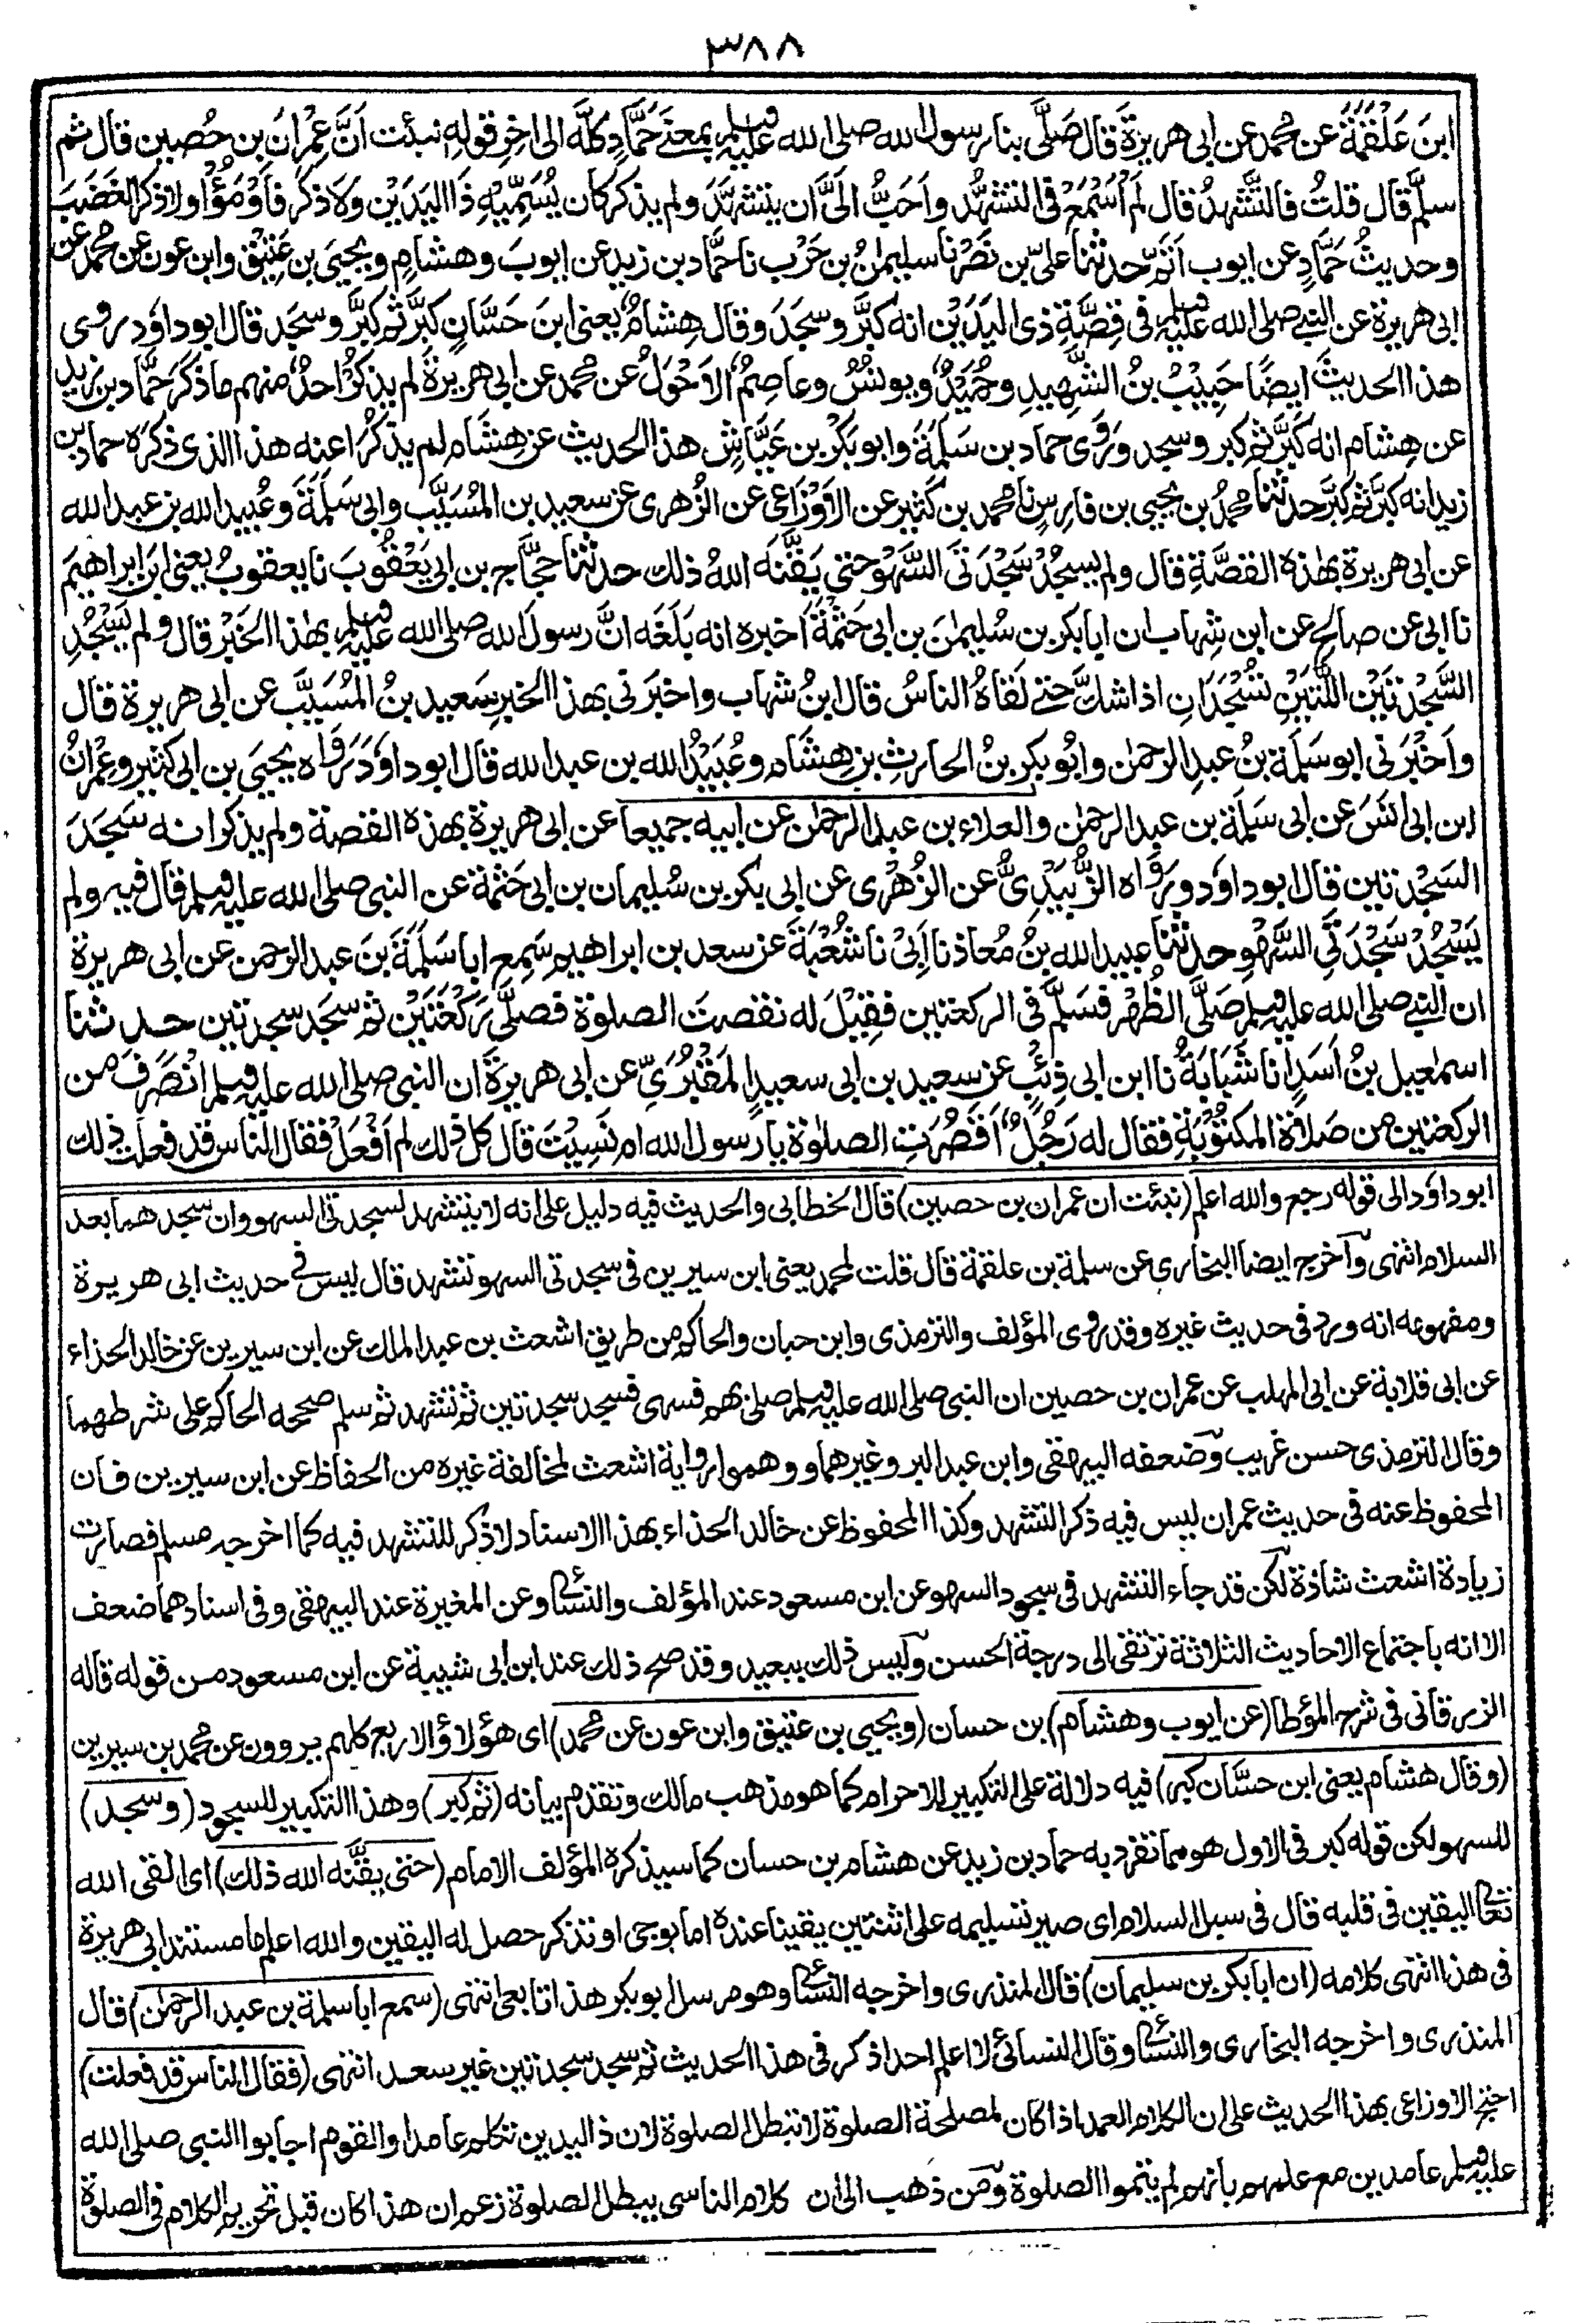 ٣٨٨
ابنَ عَلْقَمَةَ عن محمد عن ابى هريرة قال صَلَّى بنا رسول الله صلى الله عليه وسلم بمعنَى حَمَّادٍ كلِّه الى اخِرِ قولِهِ نبئت اَنَّ عِمْرانَ بن حُصين قال ثم
سلَّم قال قلتُ فالتَّشَهدُ قال لَم اَسْمَعْ فى التشهُّد واَحَبُّ اِلَىَّ ان يتشهَّدَ ولم يذكر كان يُسَمِّيْهِ ذَا اليَدَيْن وَلَا ذكَر فَاَوْمَؤُا ولا ذكر الغَضَبَ
وحديثُ حَمَّادٍ عن ايوب اَتَمّ حدثنا علىّ بن نَصْر نا سليمانُ بن حَرْب نا حمَّاد بن زيد عن ايوبَ وهشامٍ ويحيَى بن عَتِيْق وابن عون عن محمد عن
ابى هريرة عن النبى صلى الله عليه وسلم فى قِصَّةِ ذى اليَدَيْن انه كبَّر وسجَدَ وقال هِشامٌ يعنى ابنَ حَسَّانٍ كبَّر ثم كبَّر وسجَد قال ابو داود روى
هذا الحديثَ ايضًا حَبِيْبُ بنُ الشَّهِيدِ وحُمَيْدٌ ويونسُ وعاصِمٌ الاَحْوَلُ عن محمد عن ابى هريرةَ لم يذكرْ احدٌ منهم ما ذكَرَ حَمَّاد بن زيد
عن هِشام انه كَبَّر ثم كبر وسجد ورَوَى حماد بن سَلَمَةَ وابو بَكْر بن عَيَّاشٍ هذا الحديث عن هِشَام لم يذكُرَا عنه هذا الذى ذكَرَه حماد بن
زيد انه كبَّر ثم كبَّر حدثنا محمدُ بن يحيى بن فارِسٍ نا محمد بن كَثير عن الاَوْزَاعى عن الزُّهرى عن سعيد بن المُسَيَّب وابى سَلَمَةَ وعُبيد الله بن عبد الله
عن ابى هريرة بهذه القصَّةِ قال ولم يسجُدْ سَجْدَتَى السَّهْوِ حتى يَقَّنَه اللهُ ذلك حدثنا حجَّاج بن ابى يَعْقُوبَ نا يعقوبُ يعنى ابن ابراهيمَ
نا ابى عن صالح عن ابن شِهاب ان ابا بكر بن سُليمانَ بن ابى حَثْمَةَ اخبره انه بَلَغَه انَّ رسولَ الله صلى الله عليه وسلم بهذا الخَبْر قال ولم يَسْجُدِ
السَّجْدَتَيْن اللَّتَيْنِ تُسْجَدَانِ اذا شكَّ حتى لَقَاهُ الناسُ قال ابنُ شهاب واخبَرَنى بهذا الخبرِ سَعيد بنُ المُسَيَّب عن ابى هريرة قال
واَخْبَرَنى ابو سَلَمَة بنُ عبدِ الرحمٰن وابُو بكرِ بنُ الحارثِ بن هِشَام وعُبَيْدُ الله بن عبد الله قال ابو داوَد رَوَاه يحيَى بن ابى كثير وعِمْرانُ
ابن ابى انَسَ عن ابى سَلَمَة بن عبد الرحمٰن والعلاء بن عبد الرحمٰن عن ابيه جميعا عن ابى هريرة بهذه القصة ولم يذكرا انه سَجَدَ
السَجْدتين قال ابو داوَد ورَوَاه الزُّبَيْدِىُّ عن الزُهْرى عن ابى بكر بن سُليمان بن ابى حَثْمة عن النبى صلى الله عليه وسلم قال فيه ولم
يَسْجُدْ سَجْدَتَىِ السَّهْوِ حدثنا عبيد الله بنُ مُعاذ نا اَبِىْ نا شُعْبَةَ عن سعد بن ابراهيم سَمِع ابا سَلَمَةَ بنَ عبد الرحمن عن ابى هريرة
ان النبى صلى الله عليه وسلم صَلَّى الظُهْرَ فسَلَّم فى الركعتين فقِيْلَ له نقصتَ الصلوة فصلَّى رَكْعَتَيْن ثم سجَد سجدتين حدثنا
اسمٰعيل بنُ اَسَدٍ انا شَبَابَةُ نا ابن ابى ذِئْبٍ عن سعيد بن ابى سعيدٍ المَقْبُرِىِّ عن ابى هريرةَ ان النبى صلى الله عليه وسلم انْصَرَفَ من
الركعتين من صَلَاة المكتُوْبَةِ فقال له رَجُلٌ اَقَصُرَتِ الصلٰوة يا رسول الله ام نَسِيْتَ قال كل ذلك لم اَفْعَلْ فقال الناس قد فعلتَ ذلك
ابو داود الى قوله رجع والله اعلم (نبئت ان عمران بن حصين) قال الخطابى والحديث فيه دليل على انه لا يتشهد لسجدتى السهو وان سجدهما بعد
السلام انتهى وآخرج ايضا البخارى عن سلمة بن علقمة قال قلت لمحمد يعنى ابن سيرين فى سجدتى السهو تشهد قال ليس فى حديث ابى هريرة
ومفهومه انه ورد فى حديث غيره وقد روى المؤلف والترمذى وابن حبان والحاكم من طريق اشعث بن عبد الملك عن ابن سيرين عن خالد الحذاء
عن ابى قلابة عن ابى المهلب عن عمران بن حصين ان النبى صلى الله عليه وسلم صلى بهم فسهى فسجد سجدتين ثم تشهد ثم سلم صححه الحاكم على شرطهما
وقال الترمذى حسن غريب وضعفه البيهقى وابن عبد البر وغيرهما ووهموا رواية اشعث لمخالفة غيره من الحفاظ عن ابن سيرين فان
المحفوظ عنه فى حديث عمران ليس فيه ذكر التشهد وكذا المحفوظ عن خالد الحذاء بهذا الاسناد لا ذكر للتشهد فيه كما اخرجه مسلم فصارت
زيادة اشعث شاذة لكن قد جاء التشهد فى سجود السهو عن ابن مسعود عند المؤلف والنسائى وعن المغيرة عند البيهقى وفى اسنادهما ضعف
الا انه باجتماع الاحاديث الثلاثة ترتقى الى درجة الحسن وليس ذلك ببعيد وقد صح ذلك عند ابن ابى شيبة عن ابن مسعود من قوله قاله
الزرقانى فى شرح المؤطا (عن ايوب وهشام) بن حسان (ويحيى بن عتيق وابن عون عن محمد) اى هؤلاؤ الاربع كلهم يروون عن محمد بن سيرين
(وقال هشام يعنى ابن حسَّان كبر) فيه دلالة على التكبير للاحرام كما هو مذهب مالك وتقدم بيانه (ثم كبر) وهذا التكبير للسجود (وسجد)
للسهو لكن قوله كبر فى الاول هو مما تفرد به حماد بن زيد عن هشام بن حسان كما سيذكره المؤلف الامام (حتى يقَّنه الله ذلك) اى القى الله
تعالى اليقين فى قلبه قال فى سبل السلام اى صير تسليمه على اثنتين يقينا عنده اما بوحى او تذكر حصل له اليقين والله اعلم ما مستند ابى هريرة
فى هذا انتهى كلامه (ان ابا بكر بن سليمان) قال المنذرى واخرجه النسائى وهو مرسل ابو بكر هذا تابعى انتهى (سمع ابا سلمة بن عبد الرحمٰن) قال
المنذرى واخرجه البخارى والنسائى وقال النسائى لا اعلم احدا ذكر فى هذا الحديث ثم سجد سجدتين غير سعد انتهى (فقال الناس قد فعلت)
احتج الاوزاعى بهذا الحديث على ان الكلام العمد اذا كان لمصلحة الصلوة لا تبطل الصلوة لان ذا اليدين تكلم عامدا والقوم اجابوا النبى صلى الله
عليه وسلم عامدين مع علمهم بانهم لم يتموا الصلوة ومن ذهب الى ان كلام الناسى يبطل الصلوة زعم ان هذا كان قبل تحريم الكلام فى الصلوة